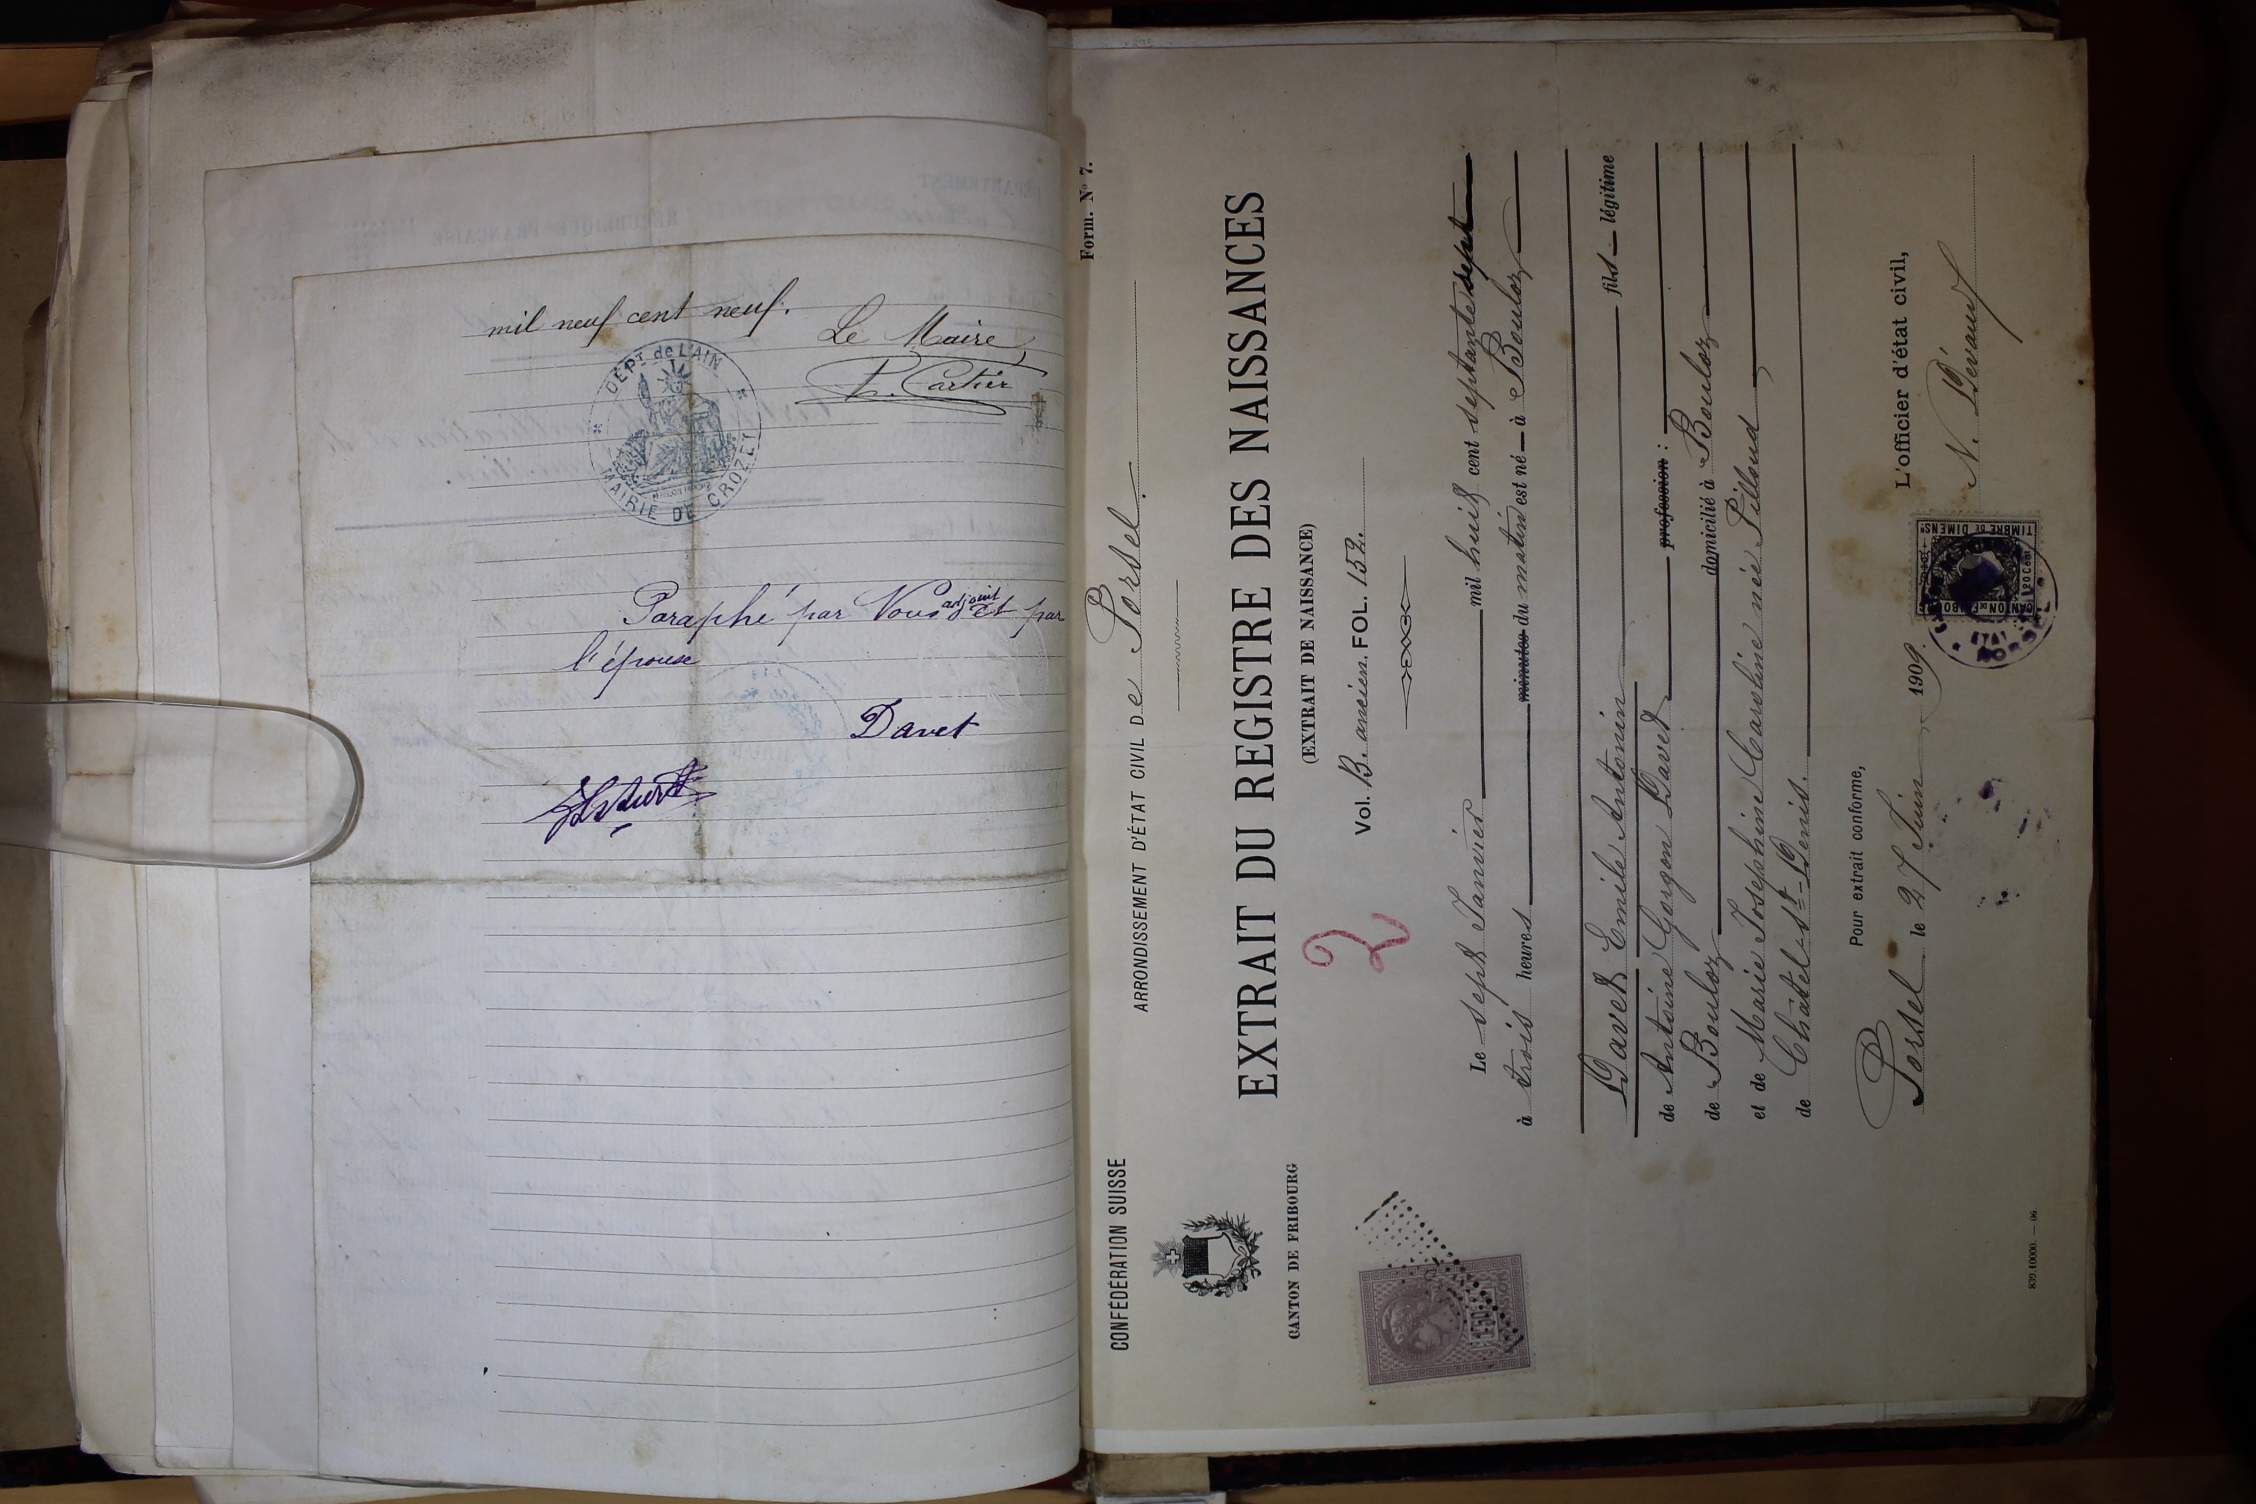 mil neuf cent neuf.
Le Maire,
DÉPT. de L'AIN
MAIRIE DE CROZET
Paraphé par Nous adjoint et par
l'épouse
Davet
Form. No 7.
CONFÉDÉRATION SUISSE
CANTON DE FRIBOURG
ARRONDISSEMENT D'ÉTAT CIVIL De Porsel.
EXTRAIT DU REGISTRE DES NAISSANCES
(EXTRAIT DE NAISSANCE)
2
Vol. B. ancien. FOL. 152.
Le sept Janvier mil huit cent septante sept
à trois heures minutes du matin est né à Bouloz
Davet Emile Antonin fils légitime
de Antoine Gorgon Davet profession :
de Bouloz domicilié à Bouloz
et de Marie Josephine Caroline née Pilloud
de Châtel-St-Denis.
Pour extrait conforme,
Porsel le 27 Juin 1909.
L'officier d'état civil,
N. Dévaud
TIMBRE DE DIMENS.
CANTON DE FRIBO
ETAT
PORSEL
832.10000. — 06